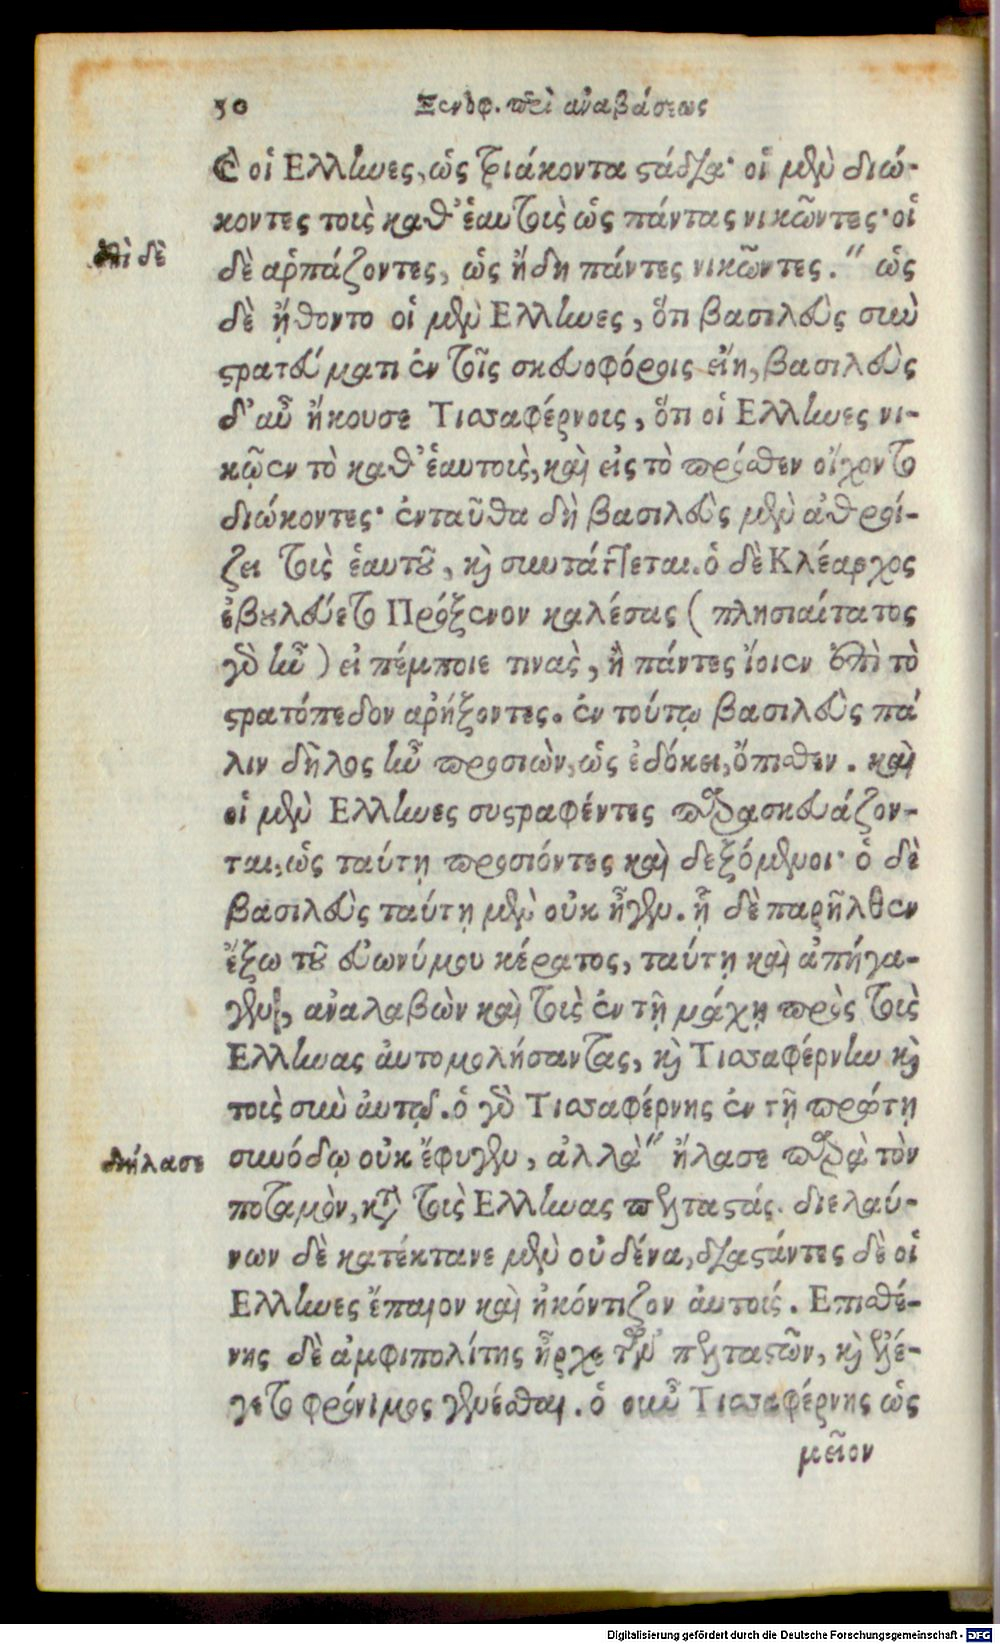 50
Ξενοφ. περὶ ἀναβάσεως
καὶ οἱ Ελληνες, ὡς τριάκοντα στάδια· οἱ μὲν διώ-
κοντες τοὺς καθ' ἑαυτοὺς ὡς πάντας νικῶντες· οἱ
δὲ ἁρπάζοντες, ὡς ἤδη πάντες νικῶντες.〃 ὡς
δὲ ᾔθοντο οἱ μὲν Ελληνες, ὅτι βασιλεὺς σὺν
στρατεύματι ἐν τοῖς σκευοφόροις εἴη, βασιλεὺς
δ' αὖ ἤκουσε Τισσαφέρνους, ὅτι οἱ Ελληνες νι-
κῷεν τὸ καθ' ἑαυτοὺς, καὶ εἰς τὸ πρόσθεν οἴχοντο
διώκοντες· ἐνταῦθα δὴ βασιλεὺς μὲν ἀθροί-
ζει τοὺς ἑαυτοῦ, καὶ συντάττεται. ὁ δὲ Κλέαρχος
ἐβουλεύετο Πρόξενον καλέσας (πλησιαίτατος
γὰρ ἦν) εἰ πέμποιέ τινας, ἢ πάντες ἴοιεν ἐπὶ τὸ
στρατόπεδον ἀρήξοντες. ἐν τούτῳ βασιλεὺς πά
λιν δῆλος ἦν προσιὼν, ὡς ἐδόκει, ὄπισθεν. καὶ
οἱ μὲν Ελληνες συστραφέντες παρασκευάζον-
ται, ὡς ταύτῃ προσιόντες καὶ δεξόμενοι· ὁ δὲ
βασιλεὺς ταύτῃ μὲν οὐκ ἦγεν. ᾗ δὲ παρῆλθεν
ἔξω τοῦ εὐωνύμου κέρατος, ταύτῃ καὶ ἀπήγα-
γεν, ἀναλαβὼν καὶ τοὺς ἐν τῇ μάχῃ πρὸς τοὺς
Ελληνας αὐτομολήσαντας, καὶ Τισσαφέρνην καὶ
τοὺς σὺν αὐτῷ. ὁ γὰρ Τισσαφέρνης ἐν τῇ πρώτῃ
συνόδῳ οὐκ ἔφυγεν, ἀλλὰ〃 ἤλασε παρὰ τὸν
ποταμὸν, κατὰ τοὺς Ελληνας πελταστάς. διελαύ-
νων δὲ κατέκτανε μὲν οὐδένα, διαστάντες δὲ οἱ
Ελληνες ἔπαιον καὶ ἠκόντιζον αὐτούς. Επισθέ-
νης δὲ ἀμφιπολίτης ἦρχε τῶν πελταστῶν, καὶ ἐλέ-
γετο φρόνιμος γενέσθαι. ὁ οὖν Τισσαφέρνης ὡς
μεῖον
ἐπεὶ δὲ
διήλασε
Digitalisierung gefördert durch die Deutsche Forschungsgemeinschaft - DFG